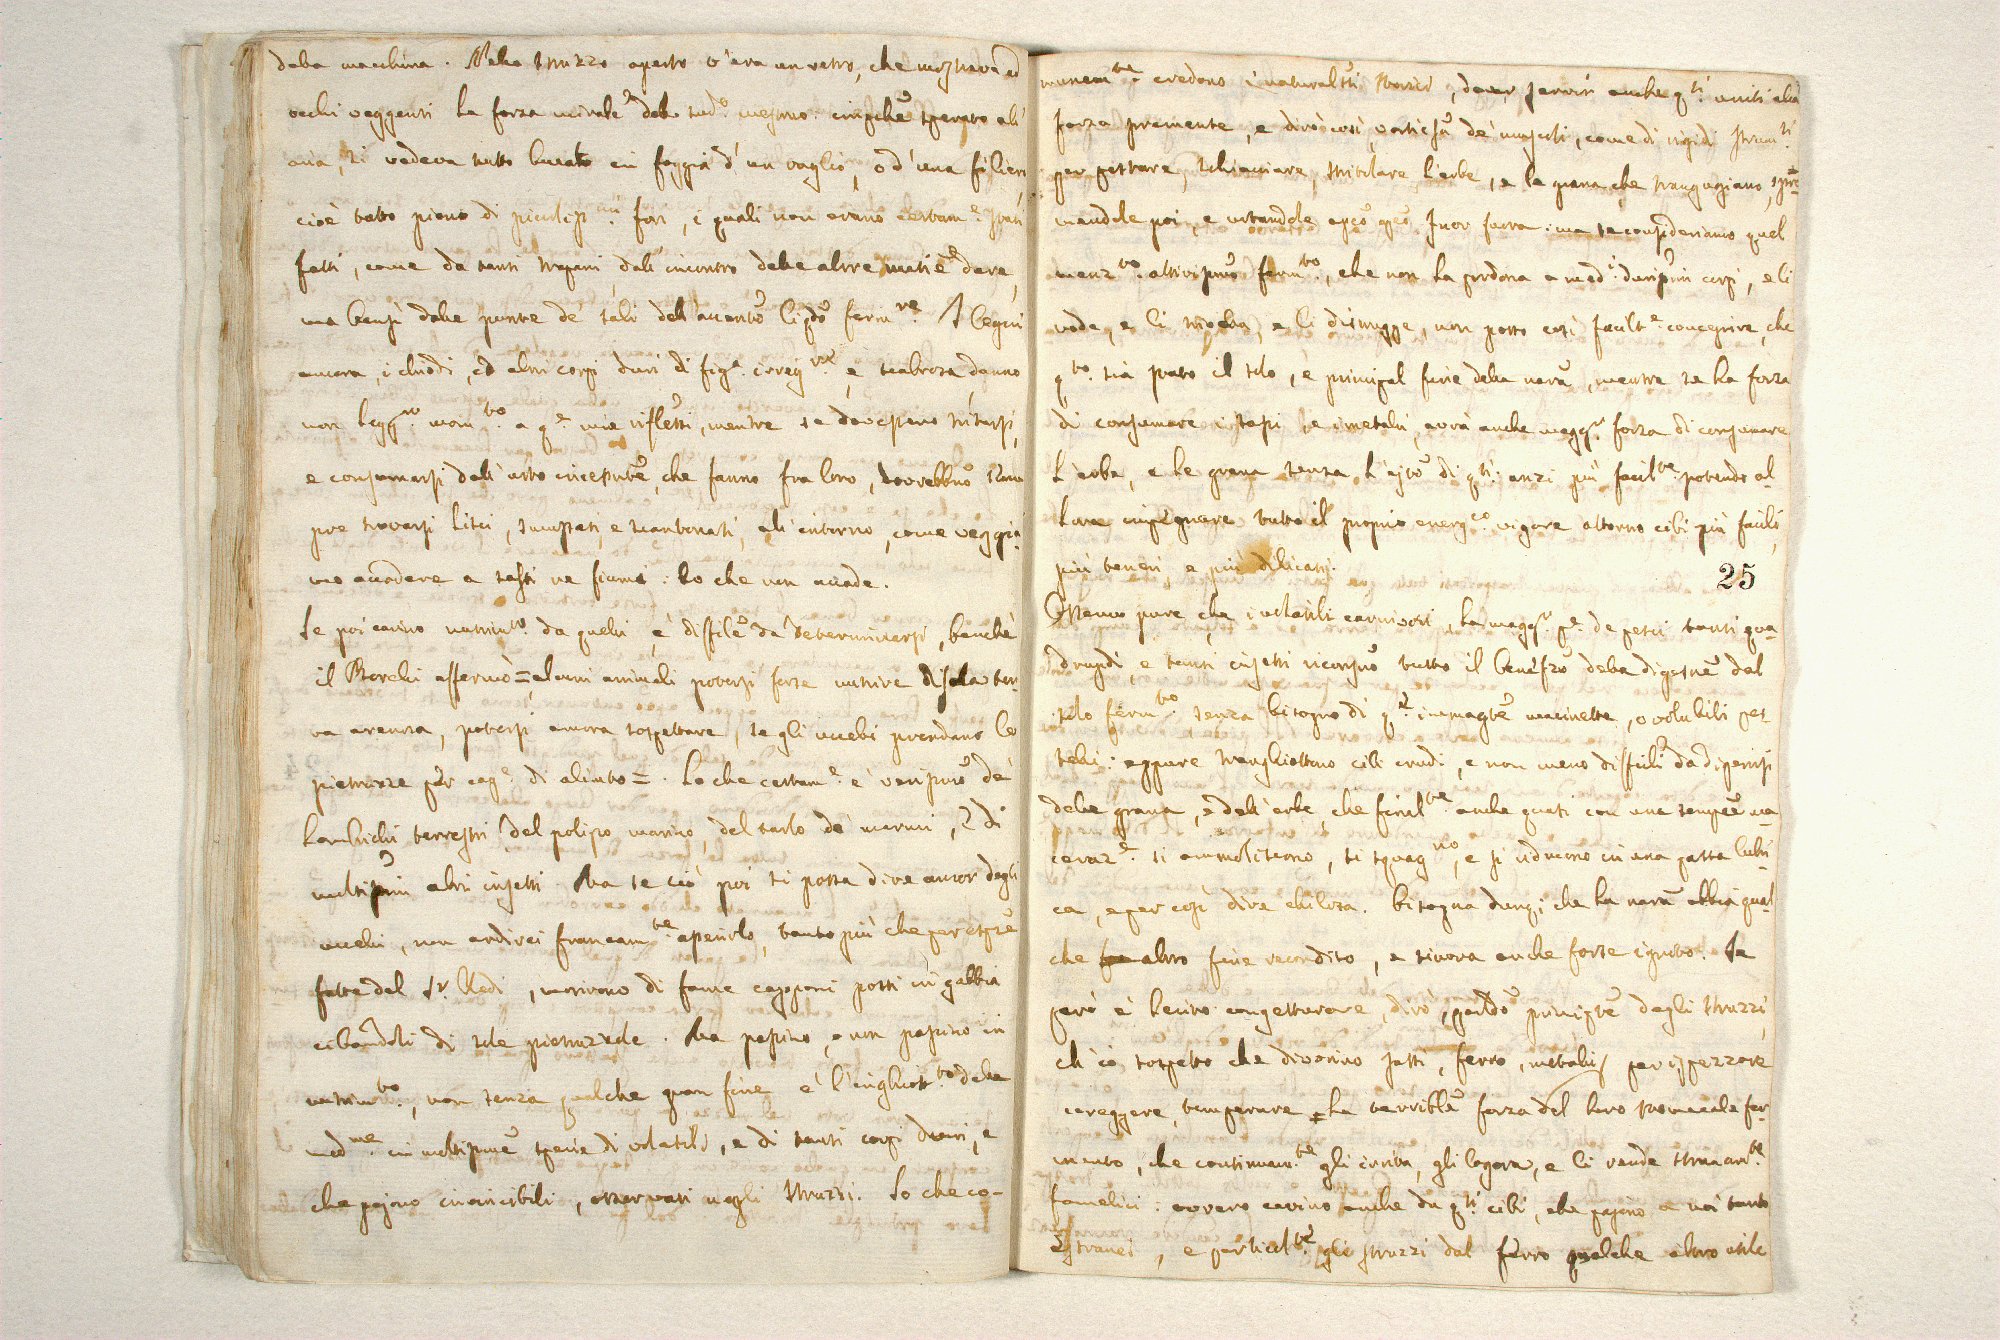 della macchina. Nello struzzo aperto v'era un vetro, che mostrava ad
occhi veggenti la forza mirab.e del sud.o mestruo: imp.che sperato all'
aria, si vedeva tutto bucato in foggia d'un vaglio, o d'una filiera,
cioè tutto pieno di piccolis.mi fori, i quali non erano certam.e stati
fatti, come da tanti trapani, dall'incontro delle altre matie dure,
ma bensì dalle punte de' sali dell'accenn.to liq.do ferm.ve. I legni
ancora, i chiodi, ed altri corpi duri di fig.a irreg.re, e scabrosa danno
non legg.ro mom.to a q.e mie rifless.i, mentre se dovessero tritarsi,
e consumarsi dall'urto, che fanno fra loro, dovrebb.no
pre trovarsi lisci, smussati, e scantonati, all'intorno, come veggia
mo accadere a sassi ne fiumi: lo che non accade.
Se poi cavino nutrim.to da quelli è diffic.le da determinarsi, benchè
il Borelli affermò = alcuni animali potersi forse nutrire di sola ter
ra arenosa, potersi ancora sospettare, se gli uccelli prendano le
pietruzze per cag.e di alim.to =. Lo che certam.e è veriss.mo de'
lombrichi terrestri, del polipo marino, del tarlo de' marmi, e di
moltiss.mi altri insetti. Ma se ciò poi si possa dire ancor degli
uccelli, non ardirei francam.te asserirlo, tanto più che per
fatte dal S.r Redi, morirono di fame capponi posti in gabbia
cibandoli di sole pietruzzole. Ma passino, o non passino in
nutrim.to, non senza qualche gran fine è l'inghiott.to delle
med.me in moltiss.me spezie di volatili, e di tanti corpi duri, e
che pajono invincibili, osservati negli struzzi. Io che co-
munem.te credono i naturalisti storici, dover servir anche q.ti uniti alla
forza premente, e dirò così, de' muscoli, come di rigidi strum.ti
per pestare, schiacciare, stritolare l'erbe, e le grana, che trangugiano, spre
mendole poi, e votandole fuor fuora: ma se consideriamo quel
menz.to attiviss.mo ferm.to, che non la perdona a med.i duriss.mi corpi, e li
rode, e li, e li distrugge, non posso così facilm.e concepire, che
q.to sia stato il solo, e principal fine della nat.a, mentre se ha forza
di consumare i sassi, e i metalli, avrà anche magg.r forza di consumare
l'erba, e le grana senza l'ajuto di q.ti: anzi più facilm.te potendo al-
lora impiegare tutto il proprio energ.co vigore attorno cibi più facili,
più teneri, e più dilicati.
25
Osservo pure, che i volatili carnivori, la magg.r p.e de pesci, tanti qua-
drupedi, e tanti insetti ricon.no tutto il benefizio della digest.ne dal
solo ferm.to senza bisogno di q.e macinette, o volubili pes
telli: eppure tranghiottono cibi crudi, e non meno diffic.li da digerirsi
delle grana, e dell'erbe, che finalm.te anche quasi con una semplice ma
ceraz.e si ammolliscono, si squag.no, e si riducono in una pasta lubri
ca, e per così dire chilosa. Bisogna dunq; che la nat.a abbia qual
che altro fine recondito, e sinora anche forse ignoto. Se
però è lecito congetturare, dirò, parl.do princip.te degli struzzi,
ch'io sospetto che divorino sassi, ferro, metalli, per ispezzare
coreggere, temperare la terribile forza del loro stomacale fer
mento, che continuam.te gli irrita, gli logora, e li rende stranam.te
famelici: ovvero cavino anche da q.ti cibi, che pajono a noi tanto
stranei, e particol.te gli struzzi dal ferro qualche altro utile